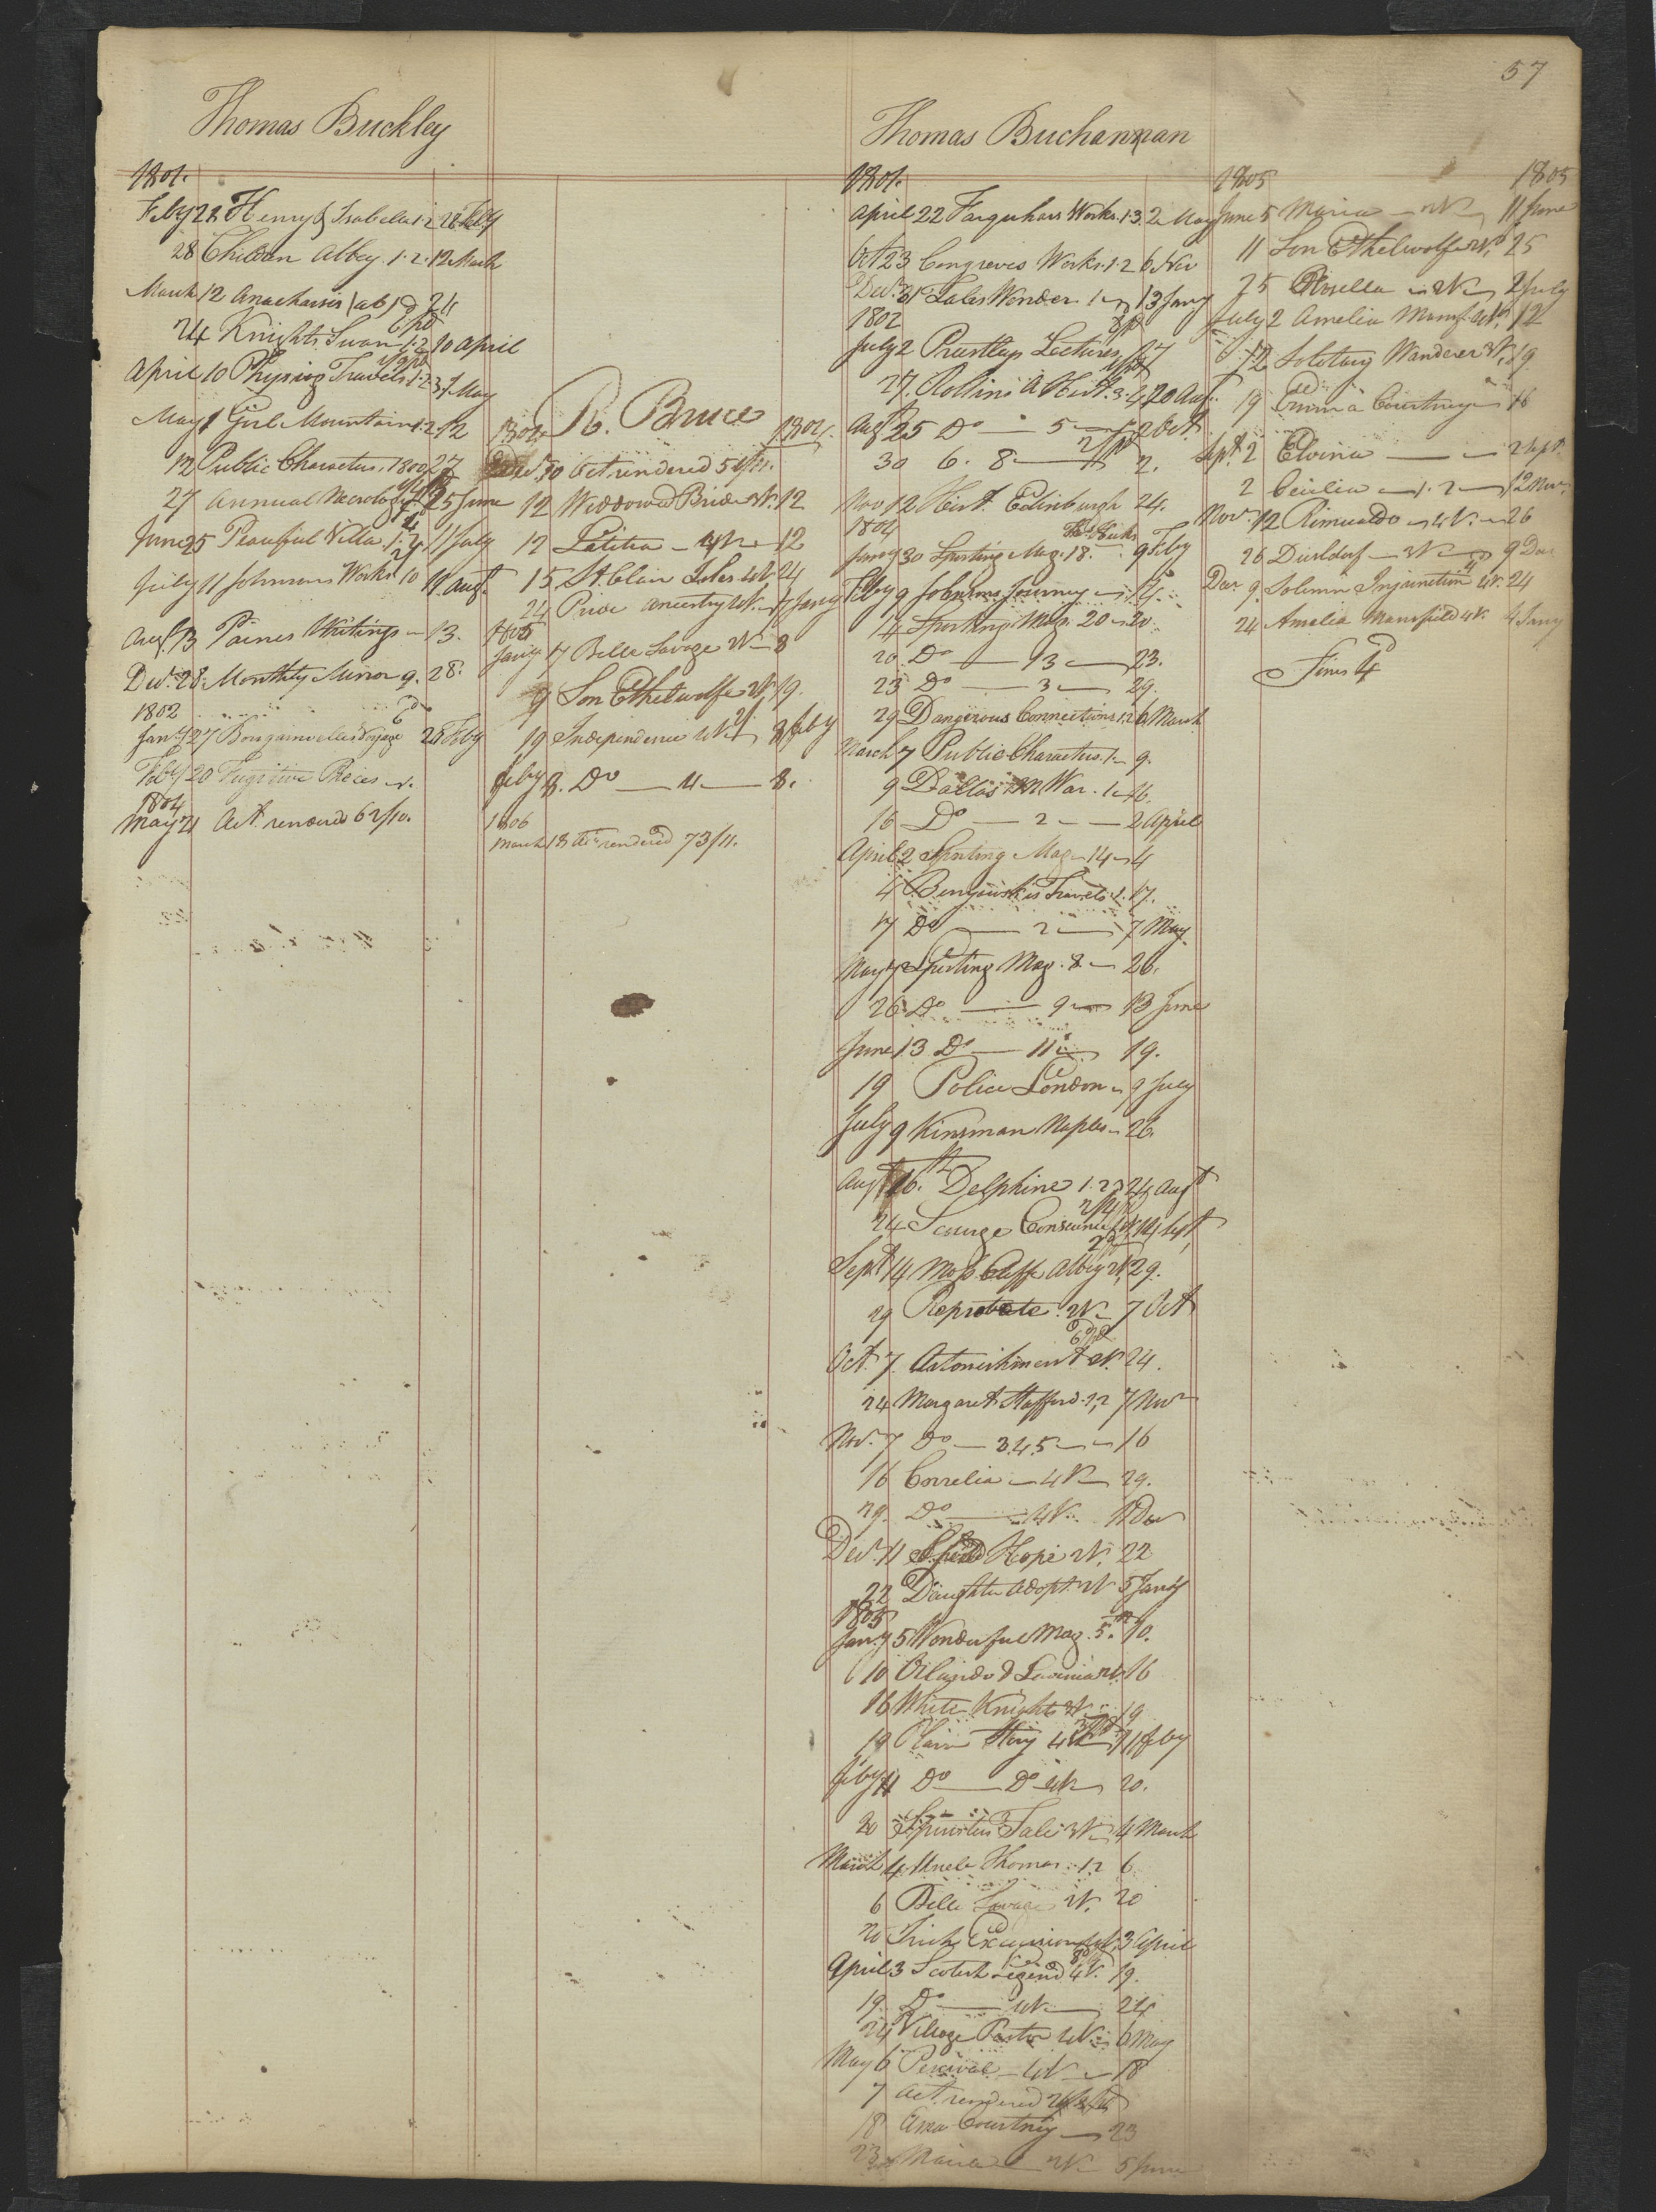 57
Thomas Buckley
1801.
Feby 22 Henry & Isabella 1.2 28 Feby
28 Children Abbey. 1.2. 12 March
March 12 Anacharsis (ab) 24
24 Knights Swan 1.2 10 April
April 10 Physiog Travels 1.2 3 May
May 1 Girl Mountain 1.2 12
12 Public Characters. 1800 27
27 Annual Necrology 25 June
June 25 Peaceful Villa 1.2 11 July
July 11 Johnsons Works 10 11 Augt.
Augt. 13 Paines Writings 13.
Decr. 28. Monthly Mirror 9. 28.
1802
Jany 27 Bougainvilles Voyage 6d 20 Feby
Feby 20 Fugitive Pieces
1804
May 21 Act. rendered 62/10.
R. Bruce
1804 1804.
Decr. 10 Act rendered 5
12 Widdowed Bride 3V. 12
12 Letitia 12
15 St. Clair Isles 4V 24
24 Price Ancestry 4V. 7 Jany
1805
Jany 7 Belle Savage 2V 8
9 Son Ethelwolfe 2V. 19.
19 Independence 4V 8 Feby
Feby 8. Do 4 8.
1806
March 18 Act rendered 73/11.
Thomas Buchannan
1801.
April 22 Farquhars Works. 1.3. 2 May
Oct 23 Congreves Works. 1.2 6 Nov
Decr. 31 Tales Wonder 1 13 Jany
1802
July 2 Priestleys Lectures 27
27. Rollins A. Hist. 3.4 20 Augt.
Augt 25 Do 5 2 Oct
30 6. 8 2.
Nov 12 Hist. Edinburgh 24.
1804
Jany 30 Sporting Mag. 18. 9 Feby
Feby 9 Johnsons Journey 14.
14 Sporting Mag. 20 20.
20. Do 13 23.
23 Do 3 29.
29 Dangerous Connections 1.2 6 March
March 7 Public Characters. 1 9.
9 Dallas M War. 1 16.
16 Do 2 2 April
April 2 Sporting Mag 14 4
4 Benyowskis Travels. 1. 17.
17 Do 2 7 May
May 7 Sporting Mag. 8 26.
26 Do 9 13 June
June 13 Do 11 19.
19 Police London 9 July
July 9 Kinsman Naples 26.
Augt 16. Delphine 1.2 24 Augt
24 Scourge Conscience 14 Sept
Sept 14 Moss Cliffe Abbey 3V. 29.
29 Reprobate. 2V 7 Oct
Oct. 7. Astonishment 2V. 24.
24 Margaret Stafford. 1.2 7 Nov
Nov. 7 Do 3.4.5 16
16 Correlia 4V 29.
29. Do 4V. 11 Dec
Decr. 11 Hope 2V. 22
22 Daughter Adopt. 2V 5 Jany
1805
Jany 5 Wonderful Mag. 5. 10.
10 Orlando & Lavinia 2V. 16
16 White Knights 3V 19
19 Plain Story 4V 11 Feby
Feby 11 Do Do 4V 20.
20 Spinsters Tale 3V 4 March
March 4 Uncle Thomas. 1.2 6
6 Belle Savage 2V. 20
20 Irish Excursion 4V. 3 April
April 3 Scotch Legend 4V. 19.
19. Do 4V 24
24 Village Pastor 4V. 6 May
May 6 Percival 4V 18
7 Act. rendered
18 Ema Courtney 23
23 Maria 2V 5 June
1805 1805
June 5 Maria 2V 11 June
11 Son Ethelwolfe 2V. 25
25 Rosella 2V 2 July
July 2 Amelia Mansf. 4V. 12
12 Solitary Wanderer 3V. 19.
19 Emma Courtney 16
Sept. 2 Elvina 2 Sept
2 Ceicilia 1.2 12 Nov.
Nov. 12 Rimualdo 4V. 26
26 Dusseldorf 3V 9 Dec
Decr. 9. Solemn Injunction 4V. 24
24 Amelia Mansfield 4V. 4 Jany
Fines 4d